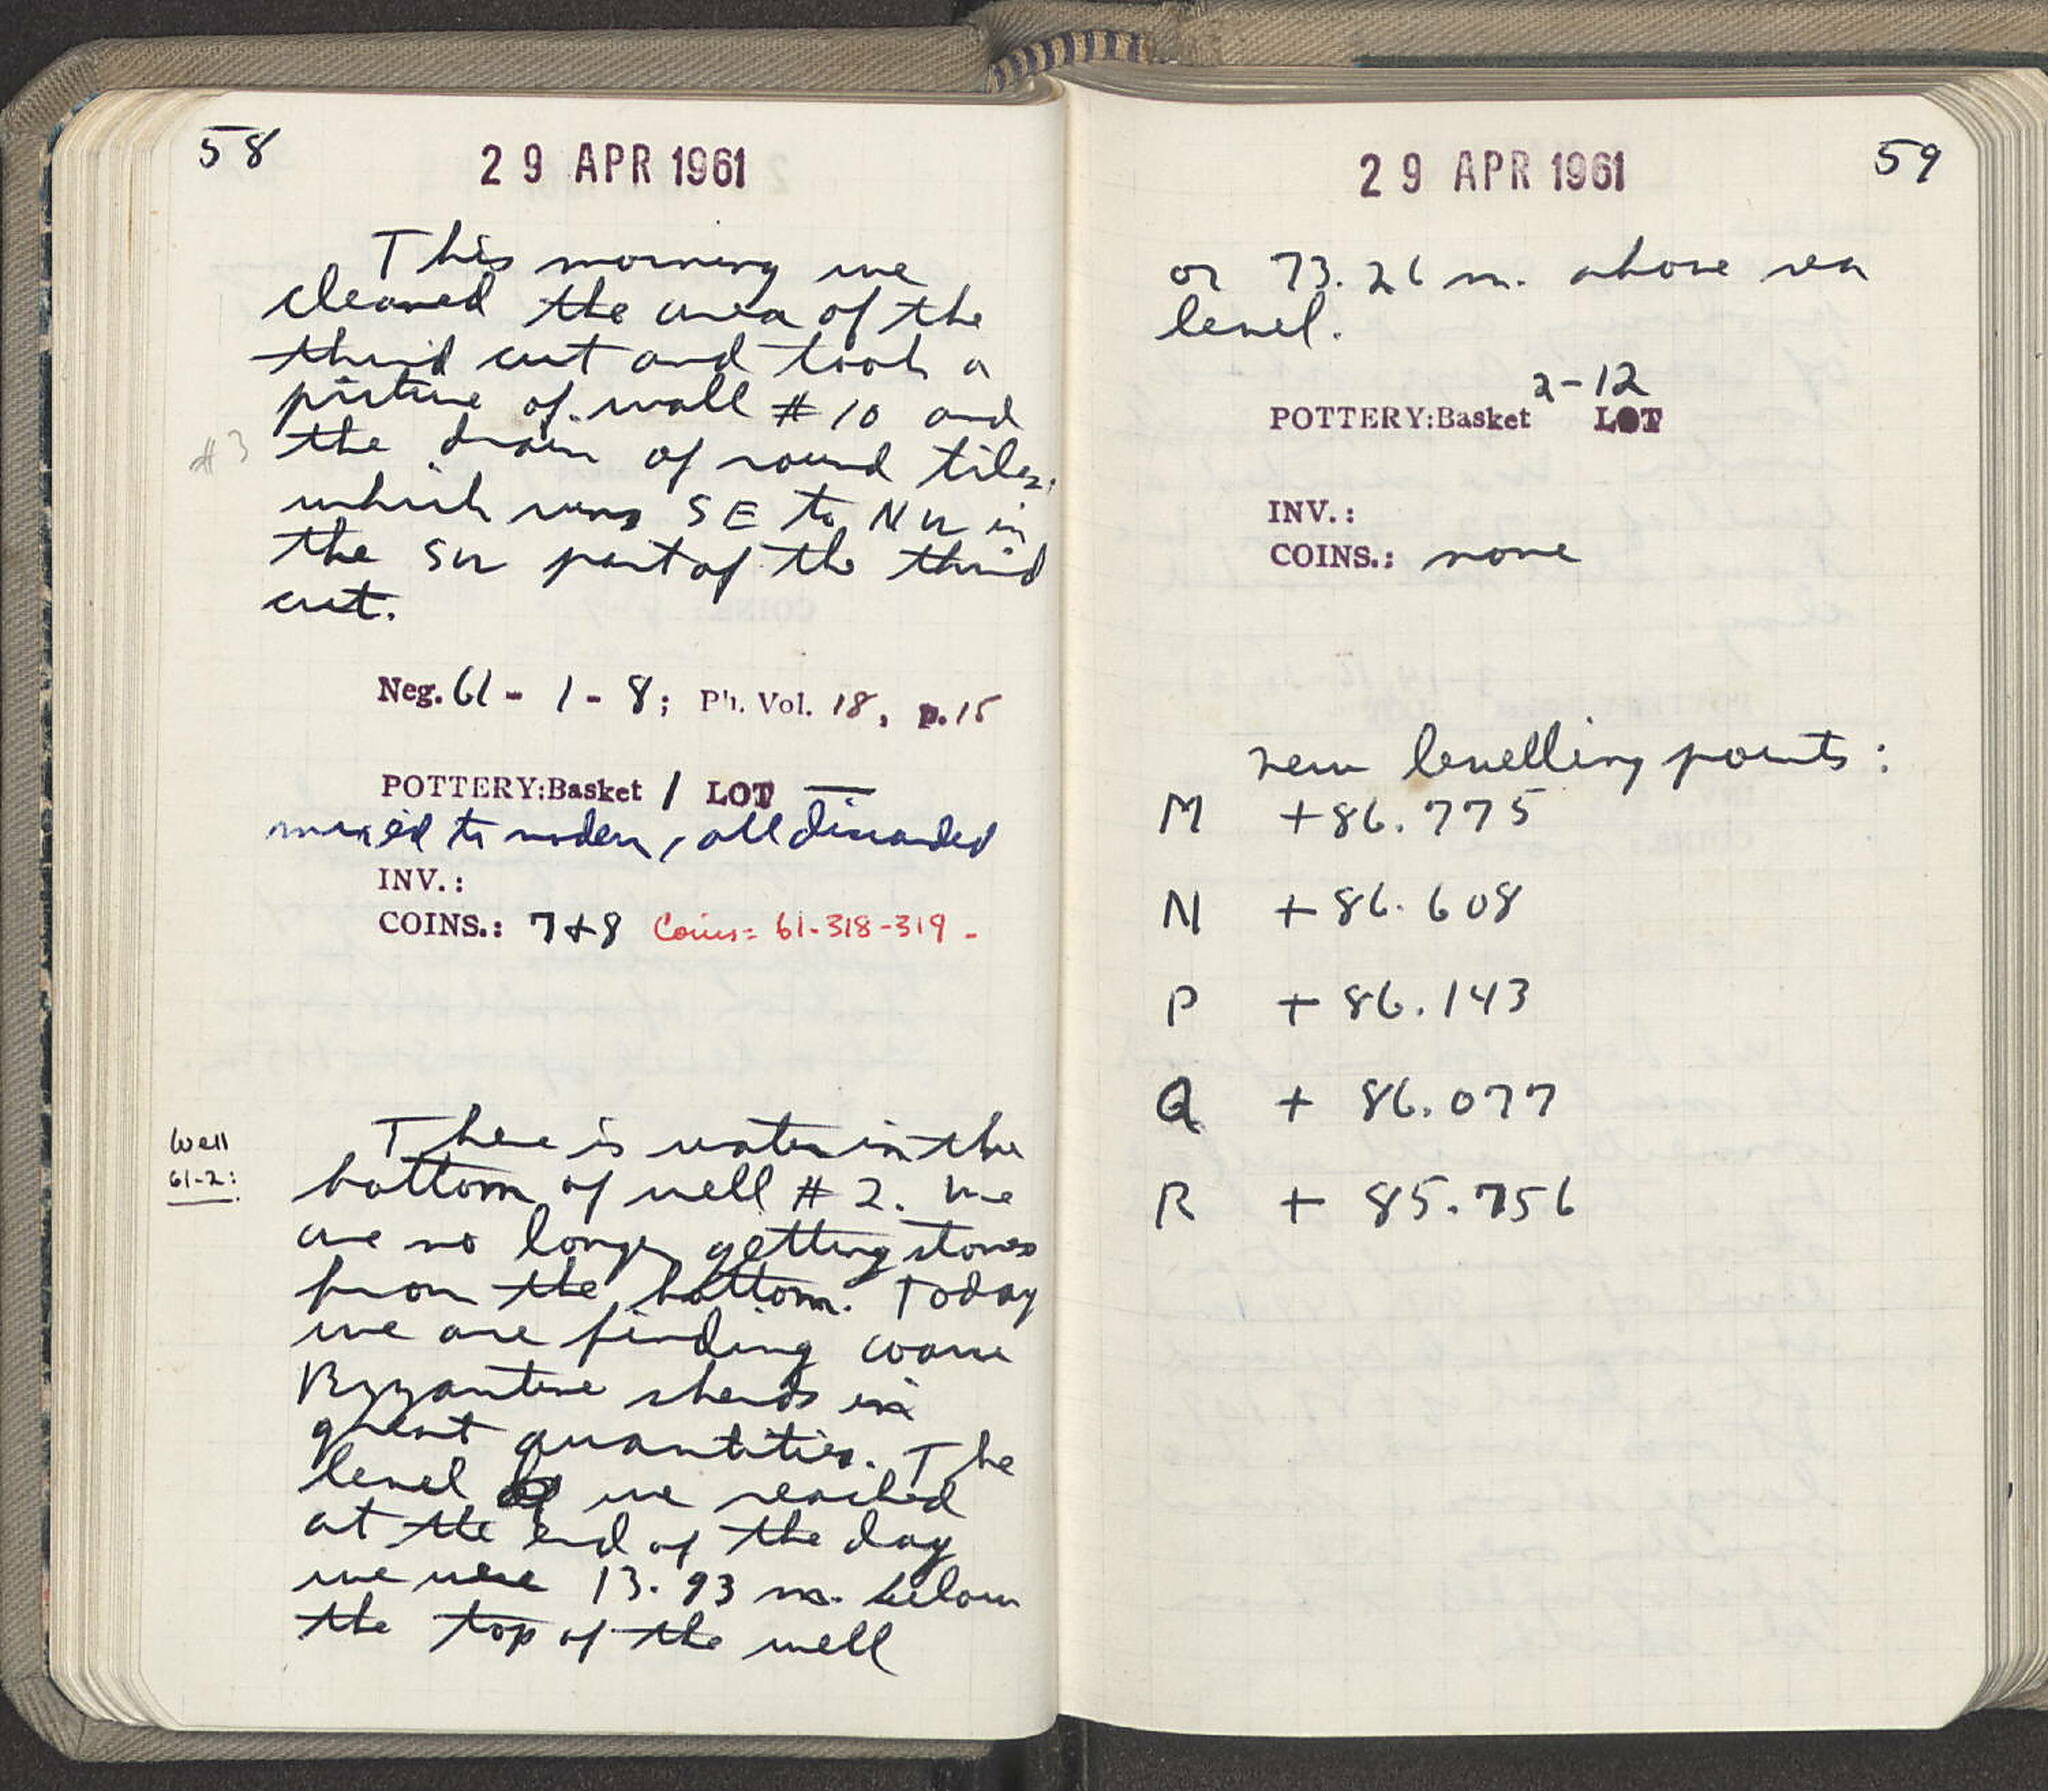 58
29 APR 1961
This morning we
cleaned the area of the
third cut and took a
picture of wall #10 and
#3 the drain of round tiles,
which runs SE to NW in
the SW part of the third
cut.
Neg. 61 - 1 - 8; Ph. Vol. 18, p. 15
POTTERY:Basket 1 LOT —
mixed to modern, all discarded
INV.:
COINS.: 7+8 Coins= 61-318-319 -
Well
61-2:
There is water in the
bottom of well #2. We
are no longer getting stones
from the bottom. Today
we are finding coarse
Byzantine sherds in
great quantities. The
level we reached
at the end of the day
we were 13.93 m. below
the top of the well
29 APR 1961
59
or 73.26 m. above sea
level.
POTTERY:Basket 2-12 LOT
INV.:
COINS.: none
new levelling points:
M +86.775
N +86.608
P +86.143
Q + 86.077
R + 85.756